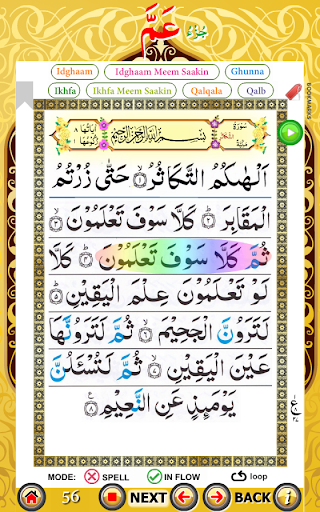 جُزْءُ عَمَّ
Idghaam Idghaam Meem Saakin Ghunna
Ikhfa Ikhfa Meem Saakin Qalqala Qalb
BOOKMARKS
بِسْمِ اللهِ الرَّحْمٰنِ الرَّحِيْمِ
اَلْهٰىكُمُ التَّكَاثُرُ ۙ﴿۱﴾ حَتّٰى زُرْتُمُ
الْمَقَابِرَ ؕ﴿۲﴾ كَلَّا سَوْفَ تَعْلَمُوْنَ ۙ﴿۳﴾
ثُمَّ كَلَّا سَوْفَ تَعْلَمُوْنَ ؕ﴿۴﴾ كَلَّا
لَوْ تَعْلَمُوْنَ عِلْمَ الْيَقِيْنِ ؕ﴿۵﴾
لَتَرَوُنَّ الْجَحِيْمَ ۙ﴿۶﴾ ثُمَّ لَتَرَوُنَّهَا
عَيْنَ الْيَقِيْنِ ۙ﴿۷﴾ ثُمَّ لَتُسْـَٔلُنَّ
يَوْمَئِذٍ عَنِ النَّعِيْمِ ﴿۸﴾
MODE: SPELL IN FLOW loop
56 NEXT BACK i